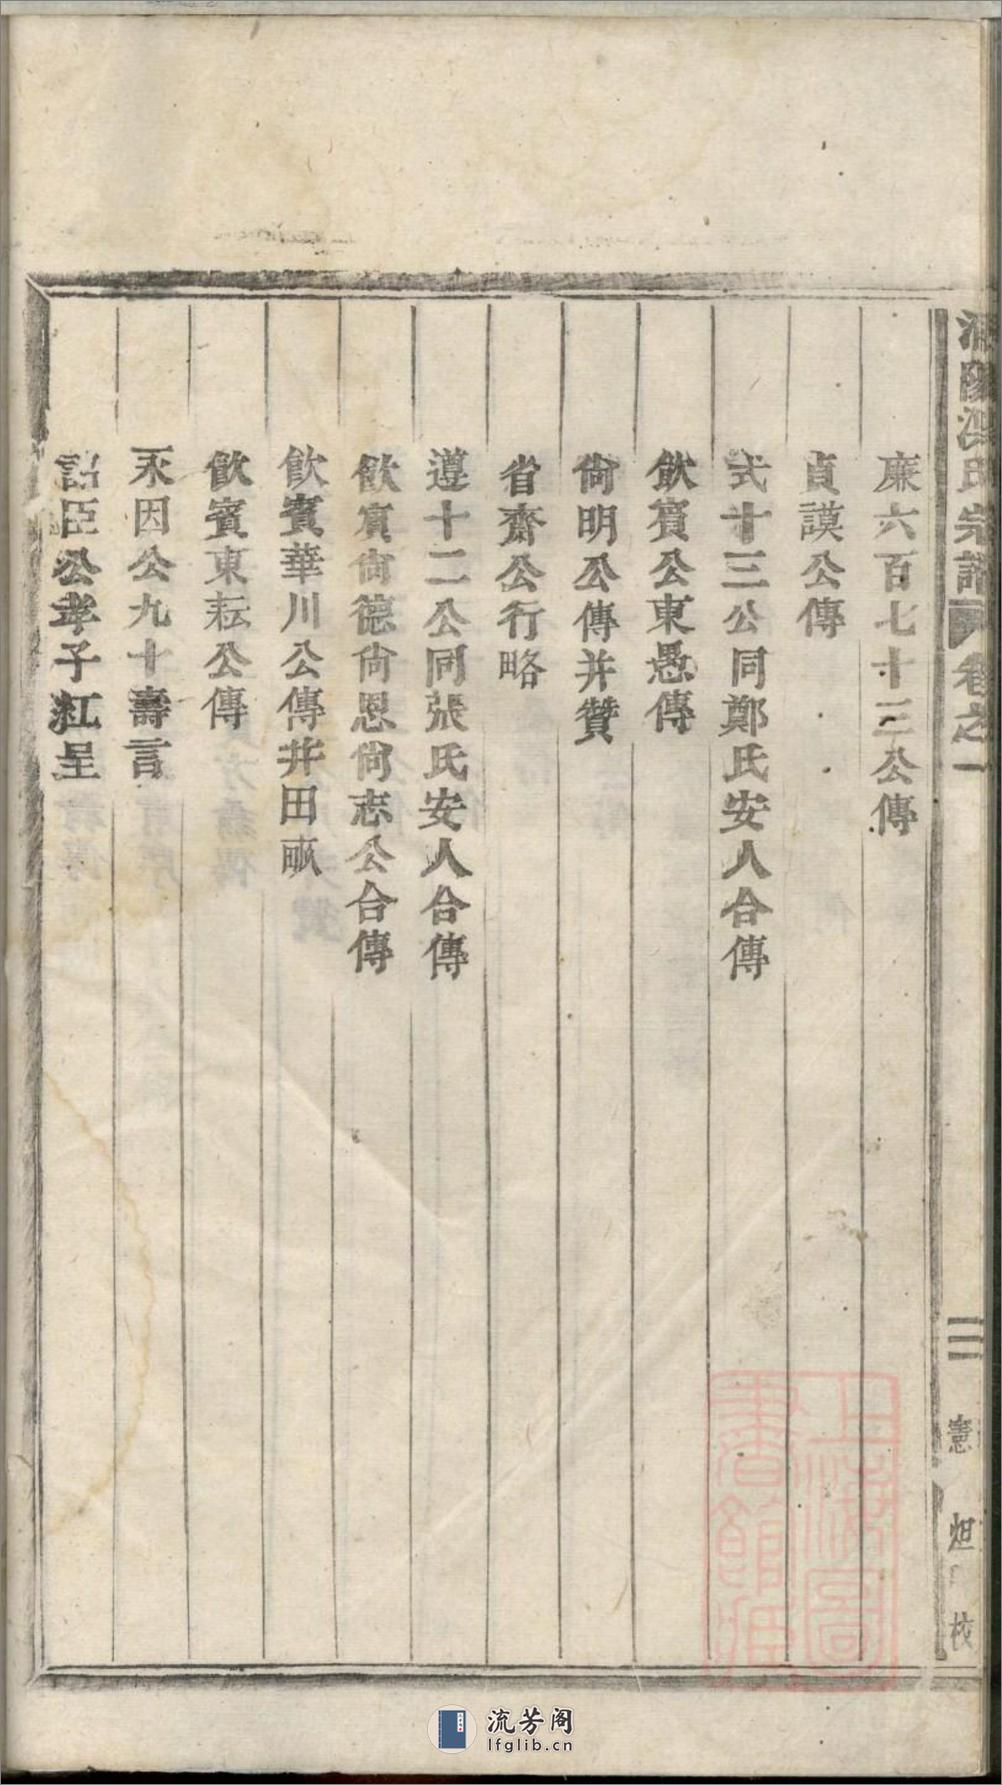 宗譜 卷之一
廉六百七十三公傳
貞謨公傳
式十三公同鄭氏安人合傳
飲賓公東愚傳
尙明公傳并贊
省齋公行略
遵十二公同張氏安人合傳
飲賓尙德尙恩尙志公合傳
飲賓華川公傳并田畝
飲賓東耘公傳
永因公九十壽言
臣公孝子紅呈
二
憲 炟 校
上海圖
書館藏
流芳阁
lfglib.cn